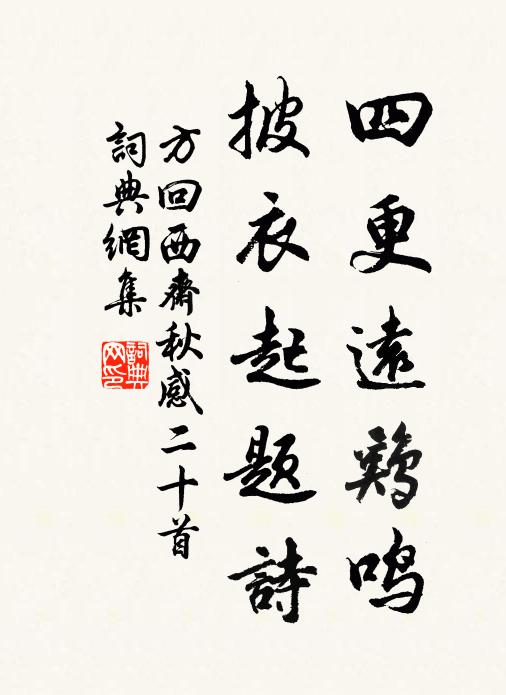 四更遠鷄鳴
披衣起題詩
方回西齋秋感二十首
詞典網集
詞典
网印